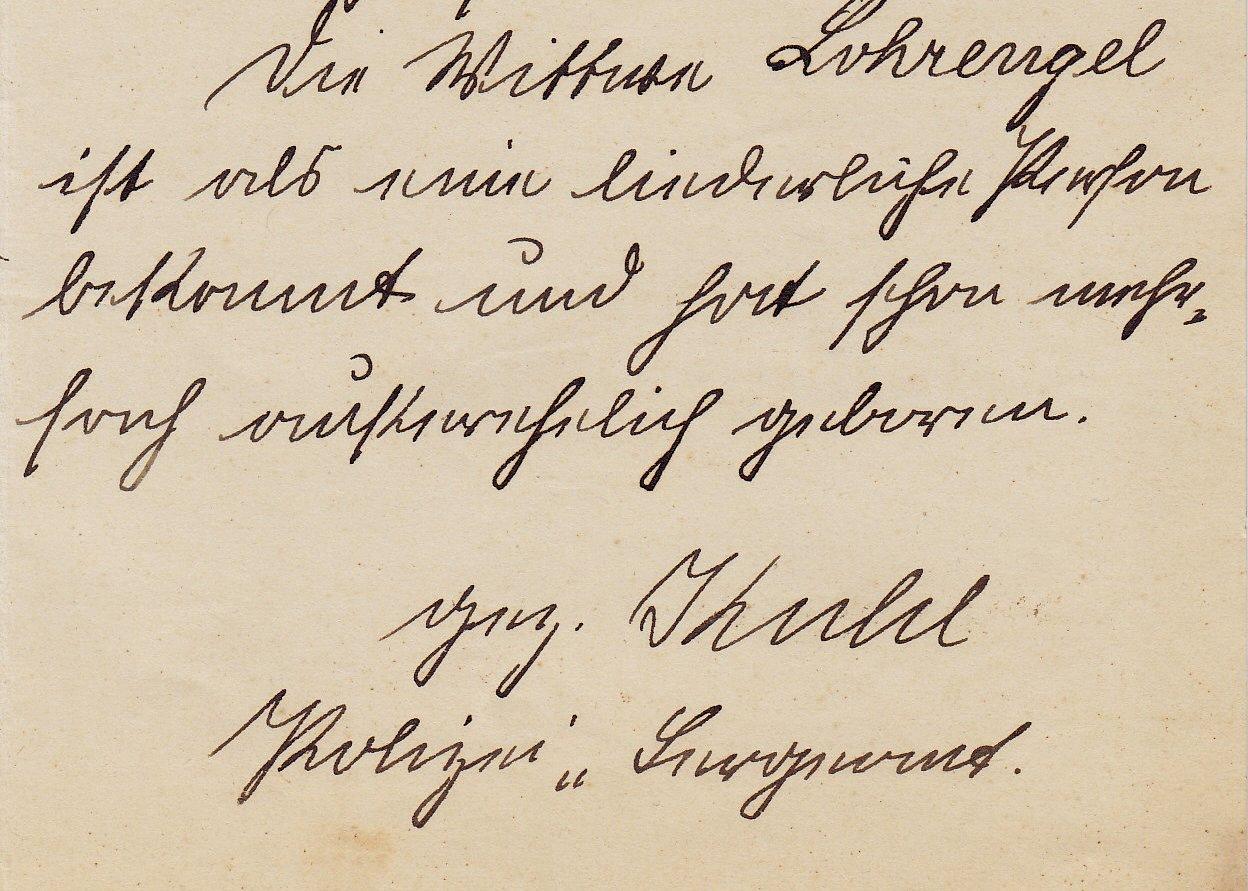 Die Wittwe Lohrengel
ist als eine liederliche Person
bekannt und hat schon mehr-
fach außerehelich geboren.
gez.
Polizei-Sergeant.